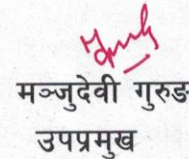 मञ्जुदेवी गुरुङ
उपप्रमुख